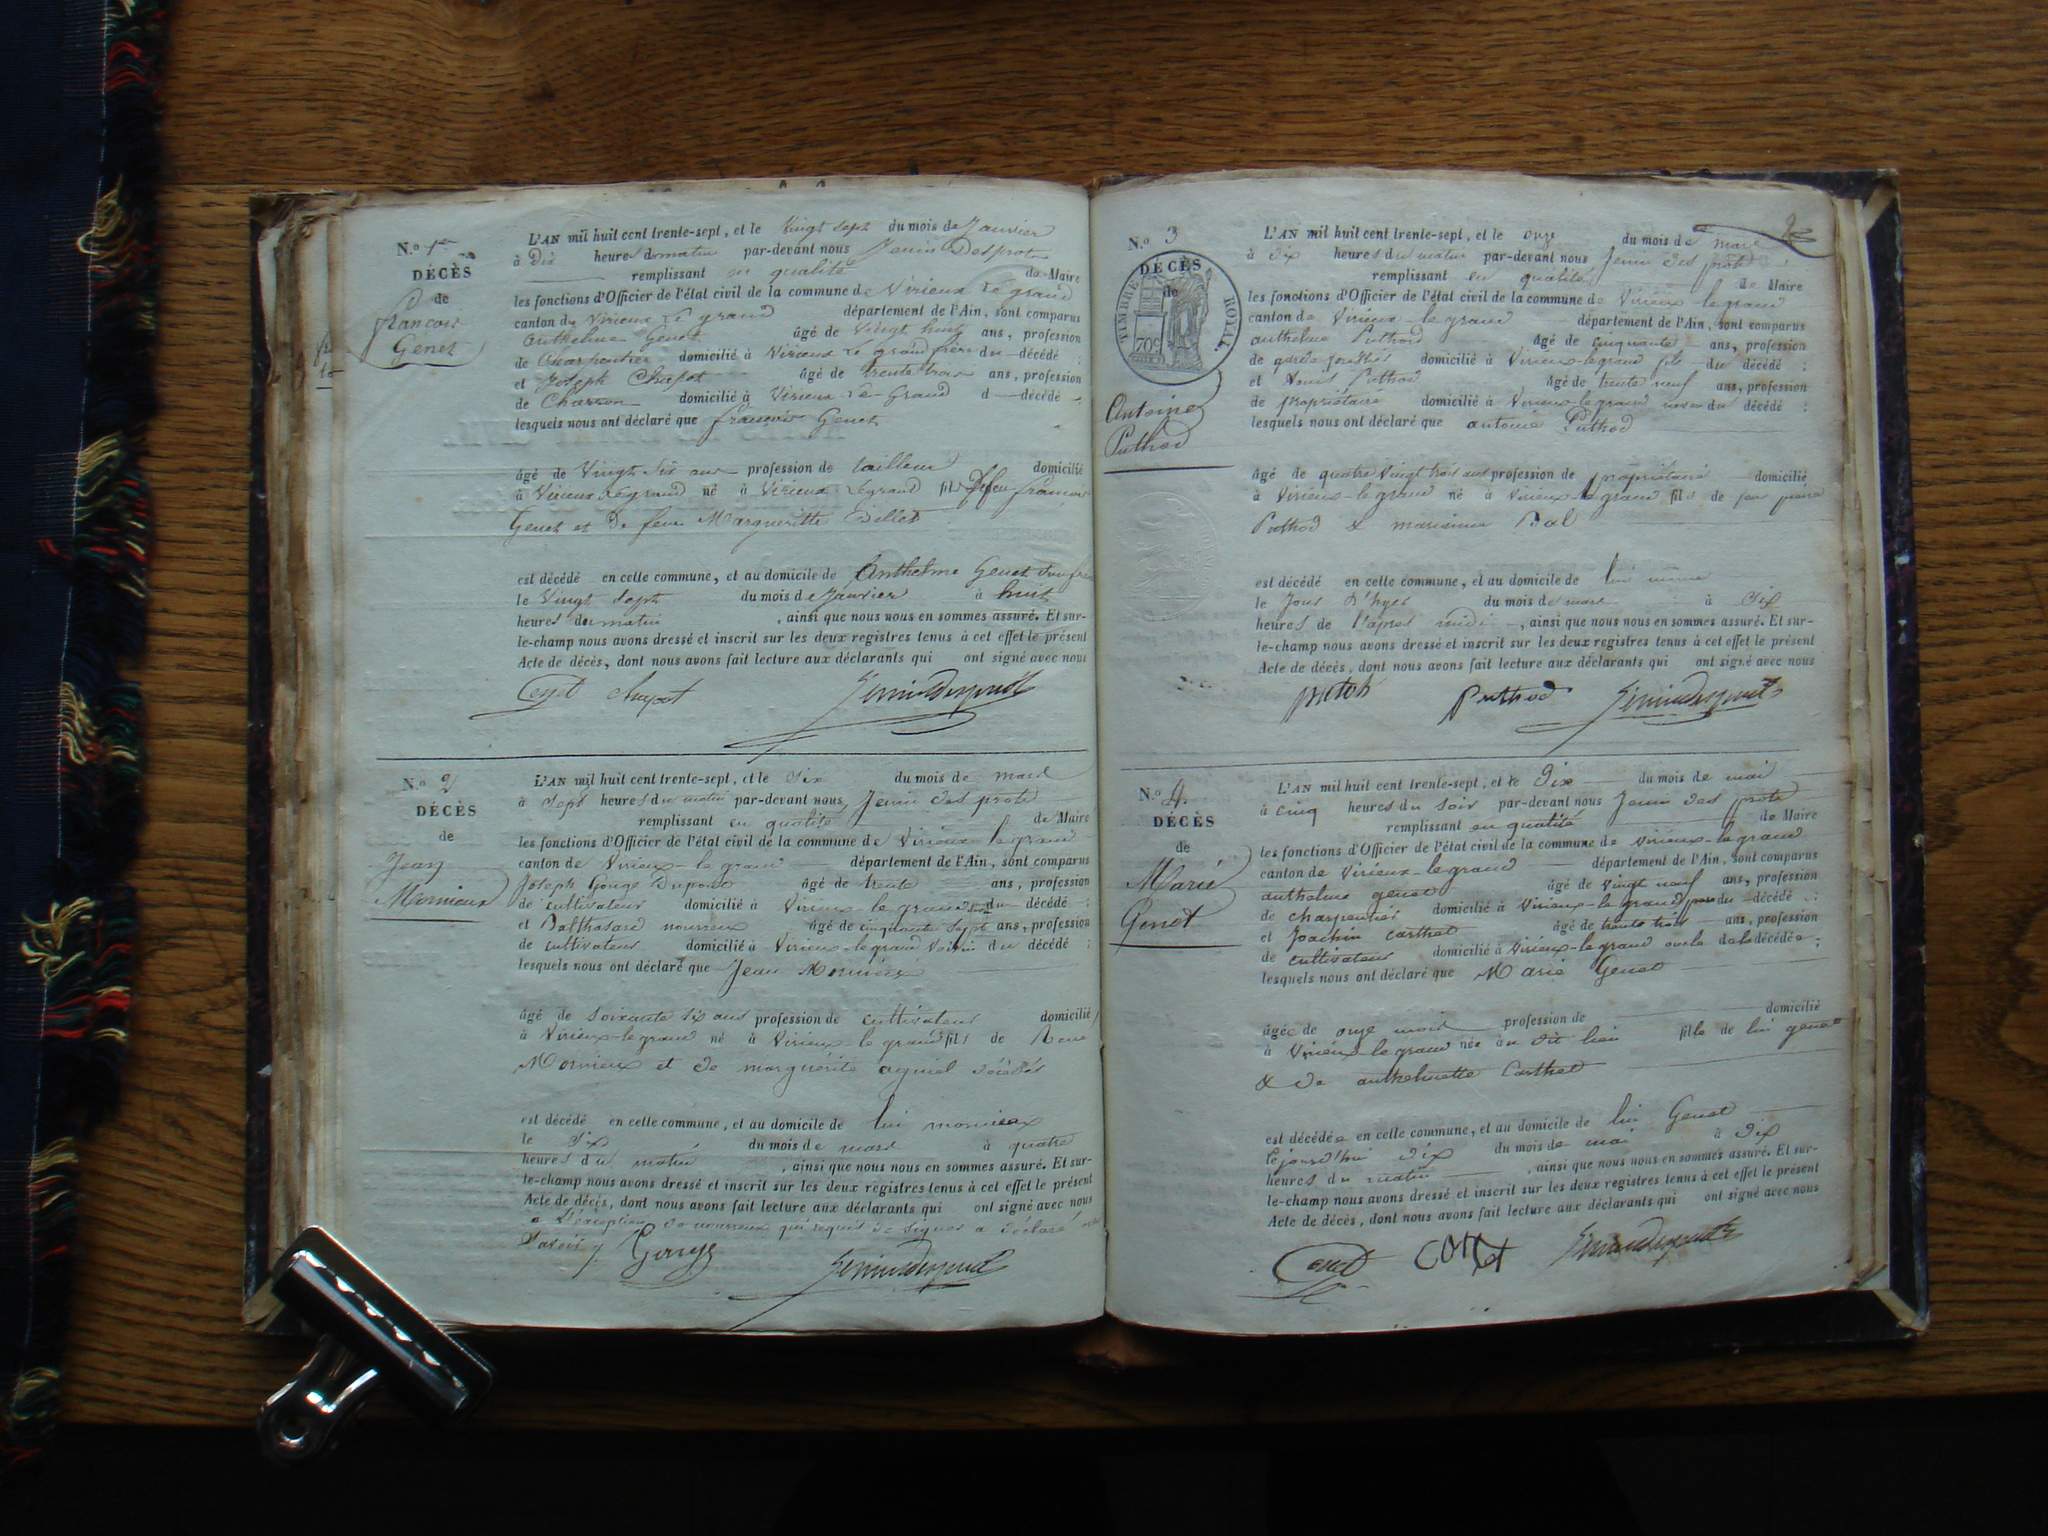 N.o 1er
DÉCÈS
de
françois
Genet
L'AN mil huit cent trente-sept, et le Vingt Sept du mois de Janvier
à Dix heures du matin par-devant nous Jenin Desprots
remplissant en qualité de Maire
les fonctions d'Officier de l'état civil de la commune de Virieux Le grand
canton de Virieux Le grand département de l'Ain, sont comparus
Anthelme Genet âgé de Vingt huit ans, profession
de Charpentier domicilié à Virieux Le grand frère du décédé ;
et Joseph Chapot âgé de trente trois ans, profession
de Charron domicilié à Virieux Le Grand d décédé ;
lesquels nous ont déclaré que françois Genet
âgé de Vingt Six ans profession de tailleur domicilié
à Virieux Legrand né à Virieux Legrand fils De feu françois
Genet et De feue Margueritte
est décédé en cette commune, et au domicile de Anthelme Genet Son frère
le Vingt Sept du mois de Janvier à huit
heures du matin, ainsi que nous nous en sommes assuré. Et sur-
le-champ nous avons dressé et inscrit sur les deux registres tenus à cet effet le présent
Acte de décès, dont nous avons fait lecture aux déclarants qui ont signé avec nous
Genet chapot Jenindesprots
N.o 2
DÉCÈS
de
Jean
Mornieux
L'AN mil huit cent trente-sept, et le Six du mois de mars
à Sept heures du matin par-devant nous Jenin des prots
remplissant en qualité de Maire
les fonctions d'Officier de l'état civil de la commune de Virieux-le grand
canton de Virieux-le grand département de l'Ain, sont comparus
Joseph Gouge Dupont âgé de trente ans, profession
de cultivateur domicilié à Virieux-le grand du décédé ;
et Balthasard nourrieux âgé de cinquante Sept ans, profession
de cultivateur domicilié à Virieux-legrand Voisin du décédé ;
lesquels nous ont déclaré que Jean Mornieux
âgé de Soixante Six ans profession de cultivateur domicilié
à Virieux-legrand né à Virieux-le grand fils de Rene
Mornieux et de marguérite décédés
est décédé en cette commune, et au domicile de lui mornieux
le Six du mois de mars à quatre
heures du matin, ainsi que nous nous en sommes assuré. Et sur-
le-champ nous avons dressé et inscrit sur les deux registres tenus à cet effet le présent
Acte de décès, dont nous avons fait lecture aux déclarants qui ont signé avec nous
à l'éxception de nourrieux qui requis de signer a déclaré ne
Savoir
Gouge Jenindesprots
2
N.o 3
DÉCÈS
de
TIMBRE ROYAL
70c
Antoine
Puthod
L'AN mil huit cent trente-sept, et le onze du mois de mars
à dix heures du matin par-devant nous Jenin des prots
remplissant en qualité de Maire
les fonctions d'Officier de l'état civil de la commune de Virieux-le grand
canton de Virieux-le grand département de l'Ain, sont comparus
anthelme Puthod âgé de cinquante ans, profession
de garde domicilié à Virieux-legrand fils du décédé ;
et Louis Puthod âgé de trente neuf ans, profession
de propriétaire domicilié à Virieux-legrand neveu du décédé ;
lesquels nous ont déclaré que antoine Puthod
âgé de quatre Vingt trois ans profession de propriétaire domicilié
à Virieux-le grand né à Virieux-le grand fils de feu pierre
Puthod & marianne
est décédé en cette commune, et au domicile de lui même
le Jour d'hyer du mois de mars à Six
heures de l'après midi, ainsi que nous nous en sommes assuré. Et sur-
le-champ nous avons dressé et inscrit sur les deux registres tenus à cet effet le présent
Acte de décès, dont nous avons fait lecture aux déclarants qui ont signé avec nous
Puthod Jenindesprots
N.o 4
DÉCÈS
de
Marie
Genet
L'AN mil huit cent trente-sept, et le Dix du mois de mai
à cinq heures du soir par-devant nous Jenin des prots
remplissant en qualité de Maire
les fonctions d'Officier de l'état civil de la commune de Virieux-le grand
canton de Virieux-le grand département de l'Ain, sont comparus
anthelme genet âgé de vingt neuf ans, profession
de charpentier domicilié à Virieux-le grand père du décédé ;
et Joachim Carthet âgé de trente trois ans, profession
de cultivateur domicilié à Virieux-le grand oncle de la décédée ;
lesquels nous ont déclaré que Marie Genet
âgée de onze mois profession de domicilié
à Virieux-le grand née au dit lieu fille de lui genet
& de anthelmette Carthet
est décédée en cette commune, et au domicile de lui Genet
lejourd'hui dix du mois de mai à Dix
heures du matin, ainsi que nous nous en sommes assuré. Et sur-
le-champ nous avons dressé et inscrit sur les deux registres tenus à cet effet le présent
Acte de décès, dont nous avons fait lecture aux déclarants qui ont signé avec nous
Genet Jenindesprots